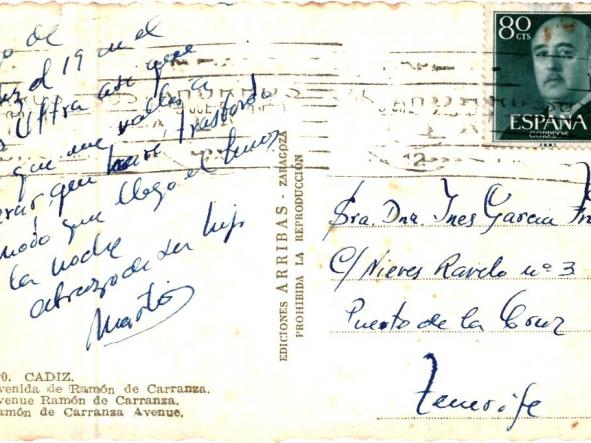 de
el 19 en el
Ultra así que
que me vallas a
que haré trasbordo
modo que llego el lunes
la noche
abrazo de su hijo
80
CTS
ESPAÑA
CORREOS
F.N.M.T.
12
EDICIONES ARRIBAS - ZARAGOZA
PROHIBIDA LA REPRODUCCIÓN
Sra. Dna. Ines Garcia
C/ Nieves Ravelo nº 3
Puerto de la Cruz
Tenerife
0. CADIZ.
venida de Ramón de Carranza.
venue Ramón de Carranza.
amón de Carranza Avenue.